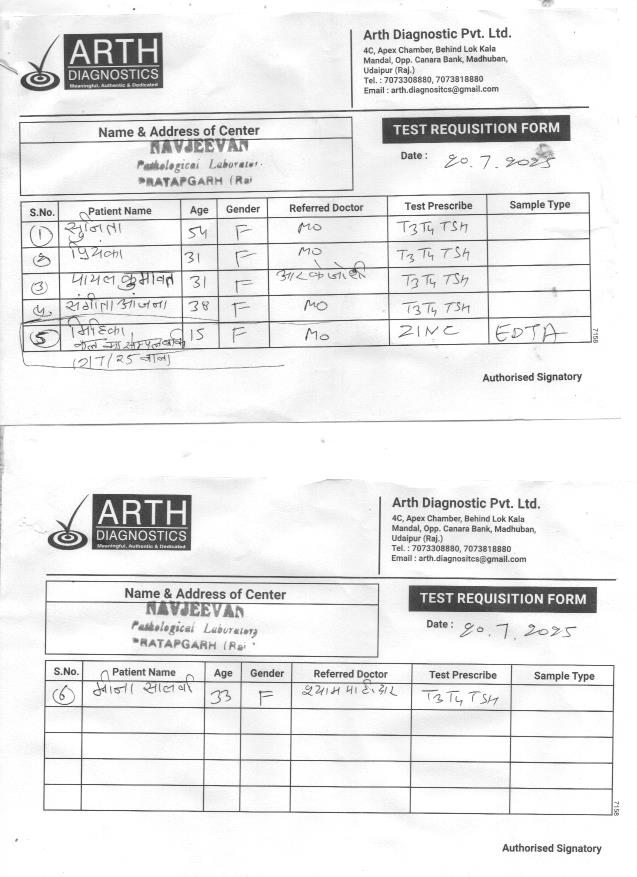 ARTH
DIAGNOSTICS
Meaningful, Authentic & Dedicated
Arth Diagnostic Pvt. Ltd.
4C, Apex Chamber, Behind Lok Kala
Mandal, Opp. Canara Bank, Madhuban,
Udaipur (Raj.)
Tel. : 7073308880, 7073818880
Email : arth.diagnositcs@gmail.com
Name & Address of Center
NAVJEEVAN
Pathological Laborator.
PRATAPGARH (Ra
TEST REQUISITION FORM
Date : 20.7.2025
S.No. Patient Name Age Gender Referred Doctor Test Prescribe Sample Type
1 सुनिता 54 F MO T3 T4 TSH
2 प्रियंका 31 F MO T3 T4 TSH
3 पायल कुमावत 31 F आर के जोशी T3 T4 TSH
4. संगीता आंजना 38 F MO T3 T4 TSH
5 15 F MO ZINC EDTA
7158
Authorised Signatory
ARTH
DIAGNOSTICS
Meaningful, Authentic & Dedicated
Arth Diagnostic Pvt. Ltd.
4C, Apex Chamber, Behind Lok Kala
Mandal, Opp. Canara Bank, Madhuban,
Udaipur (Raj.)
Tel. : 7073308880, 7073818880
Email : arth.diagnositcs@gmail.com
Name & Address of Center
NAVJEEVAN
Pathological Laboratory
PRATAPGARH (Raj
TEST REQUISITION FORM
Date : 20.7.2025
S.No. Patient Name Age Gender Referred Doctor Test Prescribe Sample Type
6 मीना सालवी 33 F श्याम पाटीदार T3 T4 TSH
7158
Authorised Signatory